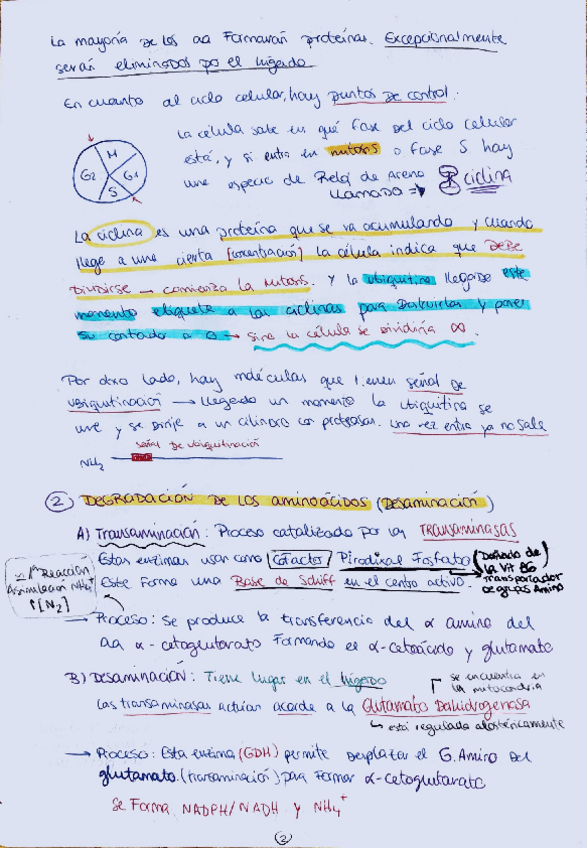 La mayoría de los aa formarán proteínas. Excepcionalmente
serán eliminados po el hígado
En cuanto al ciclo celular, hay puntos de control.
La célula sabe en qué fase del ciclo celular
está, y si entra en mitosis o fase S hay
una especie de Reloj de Arena
llamado ⇒ ciclina
M
G2
G1
S
La ciclina es una proteína que se va acumulando y cuando
llega a una cierta [concentración] la célula indica que DEBE
DIVIDIRSE — comienza la mitosis. Y la ubiquitina llegado este
momento etiqueta a las ciclinas para Destruirlas y poner
su contador a 0 → Sino la célula se dividiría ∞.
Por otro lado, hay moléculas que tienen señal de
ubiquitinación → llegado un momento la ubiquitina se
une y se dirije a un cilindro con proteasas. Una vez entra ya no sale
señal de ubiquitinación
NH2
2 DEGRADACIÓN DE LOS aminoácidos (DESAMINACIÓN)
A) Transaminación: Proceso catalizado por las TRANSAMINASAS
Estas enzimas usan como cofactor Piridixal Fosfato (Derivado de la Vit B6
Transportador de grupos Amino
Este forma una Base de Schiff en el centro activo.
1ª Reacción
Asimilación NH4+
↑[N2]
→ Proceso: Se produce la transferencia del α amino del
aa α-cetoglutarato formando el α-cetoácido y glutamato
B) Desaminación: Tiene lugar en el hígado
se encuentra en
la mitocondria
Las transaminasas actúan acorde a la Glutamato Deshidrogenasa
↳ está regulada alostéricamente
→ Proceso: Esta enzima (GDH) permite desplazar el G. Amino del
glutamato (transaminación) para formar α-cetoglutarato
Se forma NADPH/NADH y NH4+
2